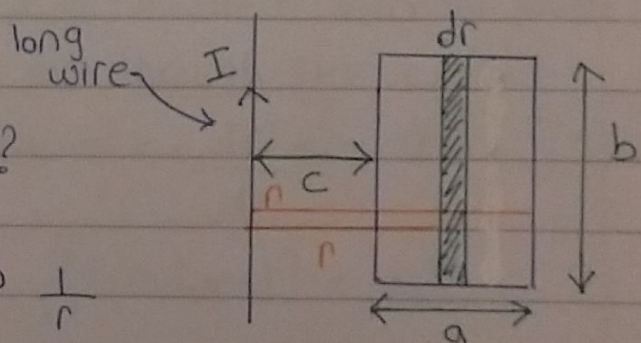 long
wire
I
dr
?
c
b
r
r
1/r
a